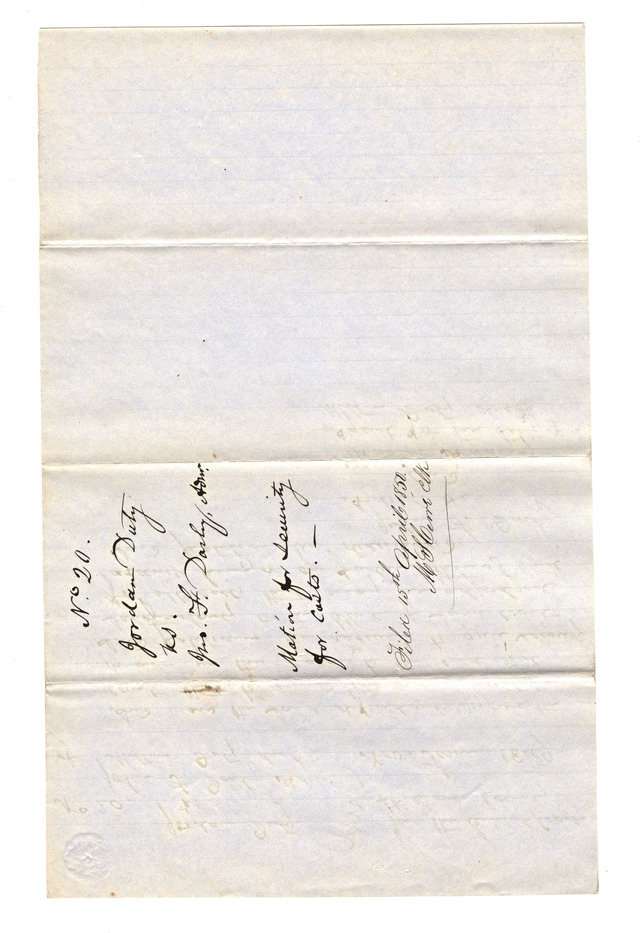 No. 20.
Jordan Duty
vs.
Jno. F. Darby, Admr.
Motion for security
for costs. —
Filed 15th April 1850.
Clk